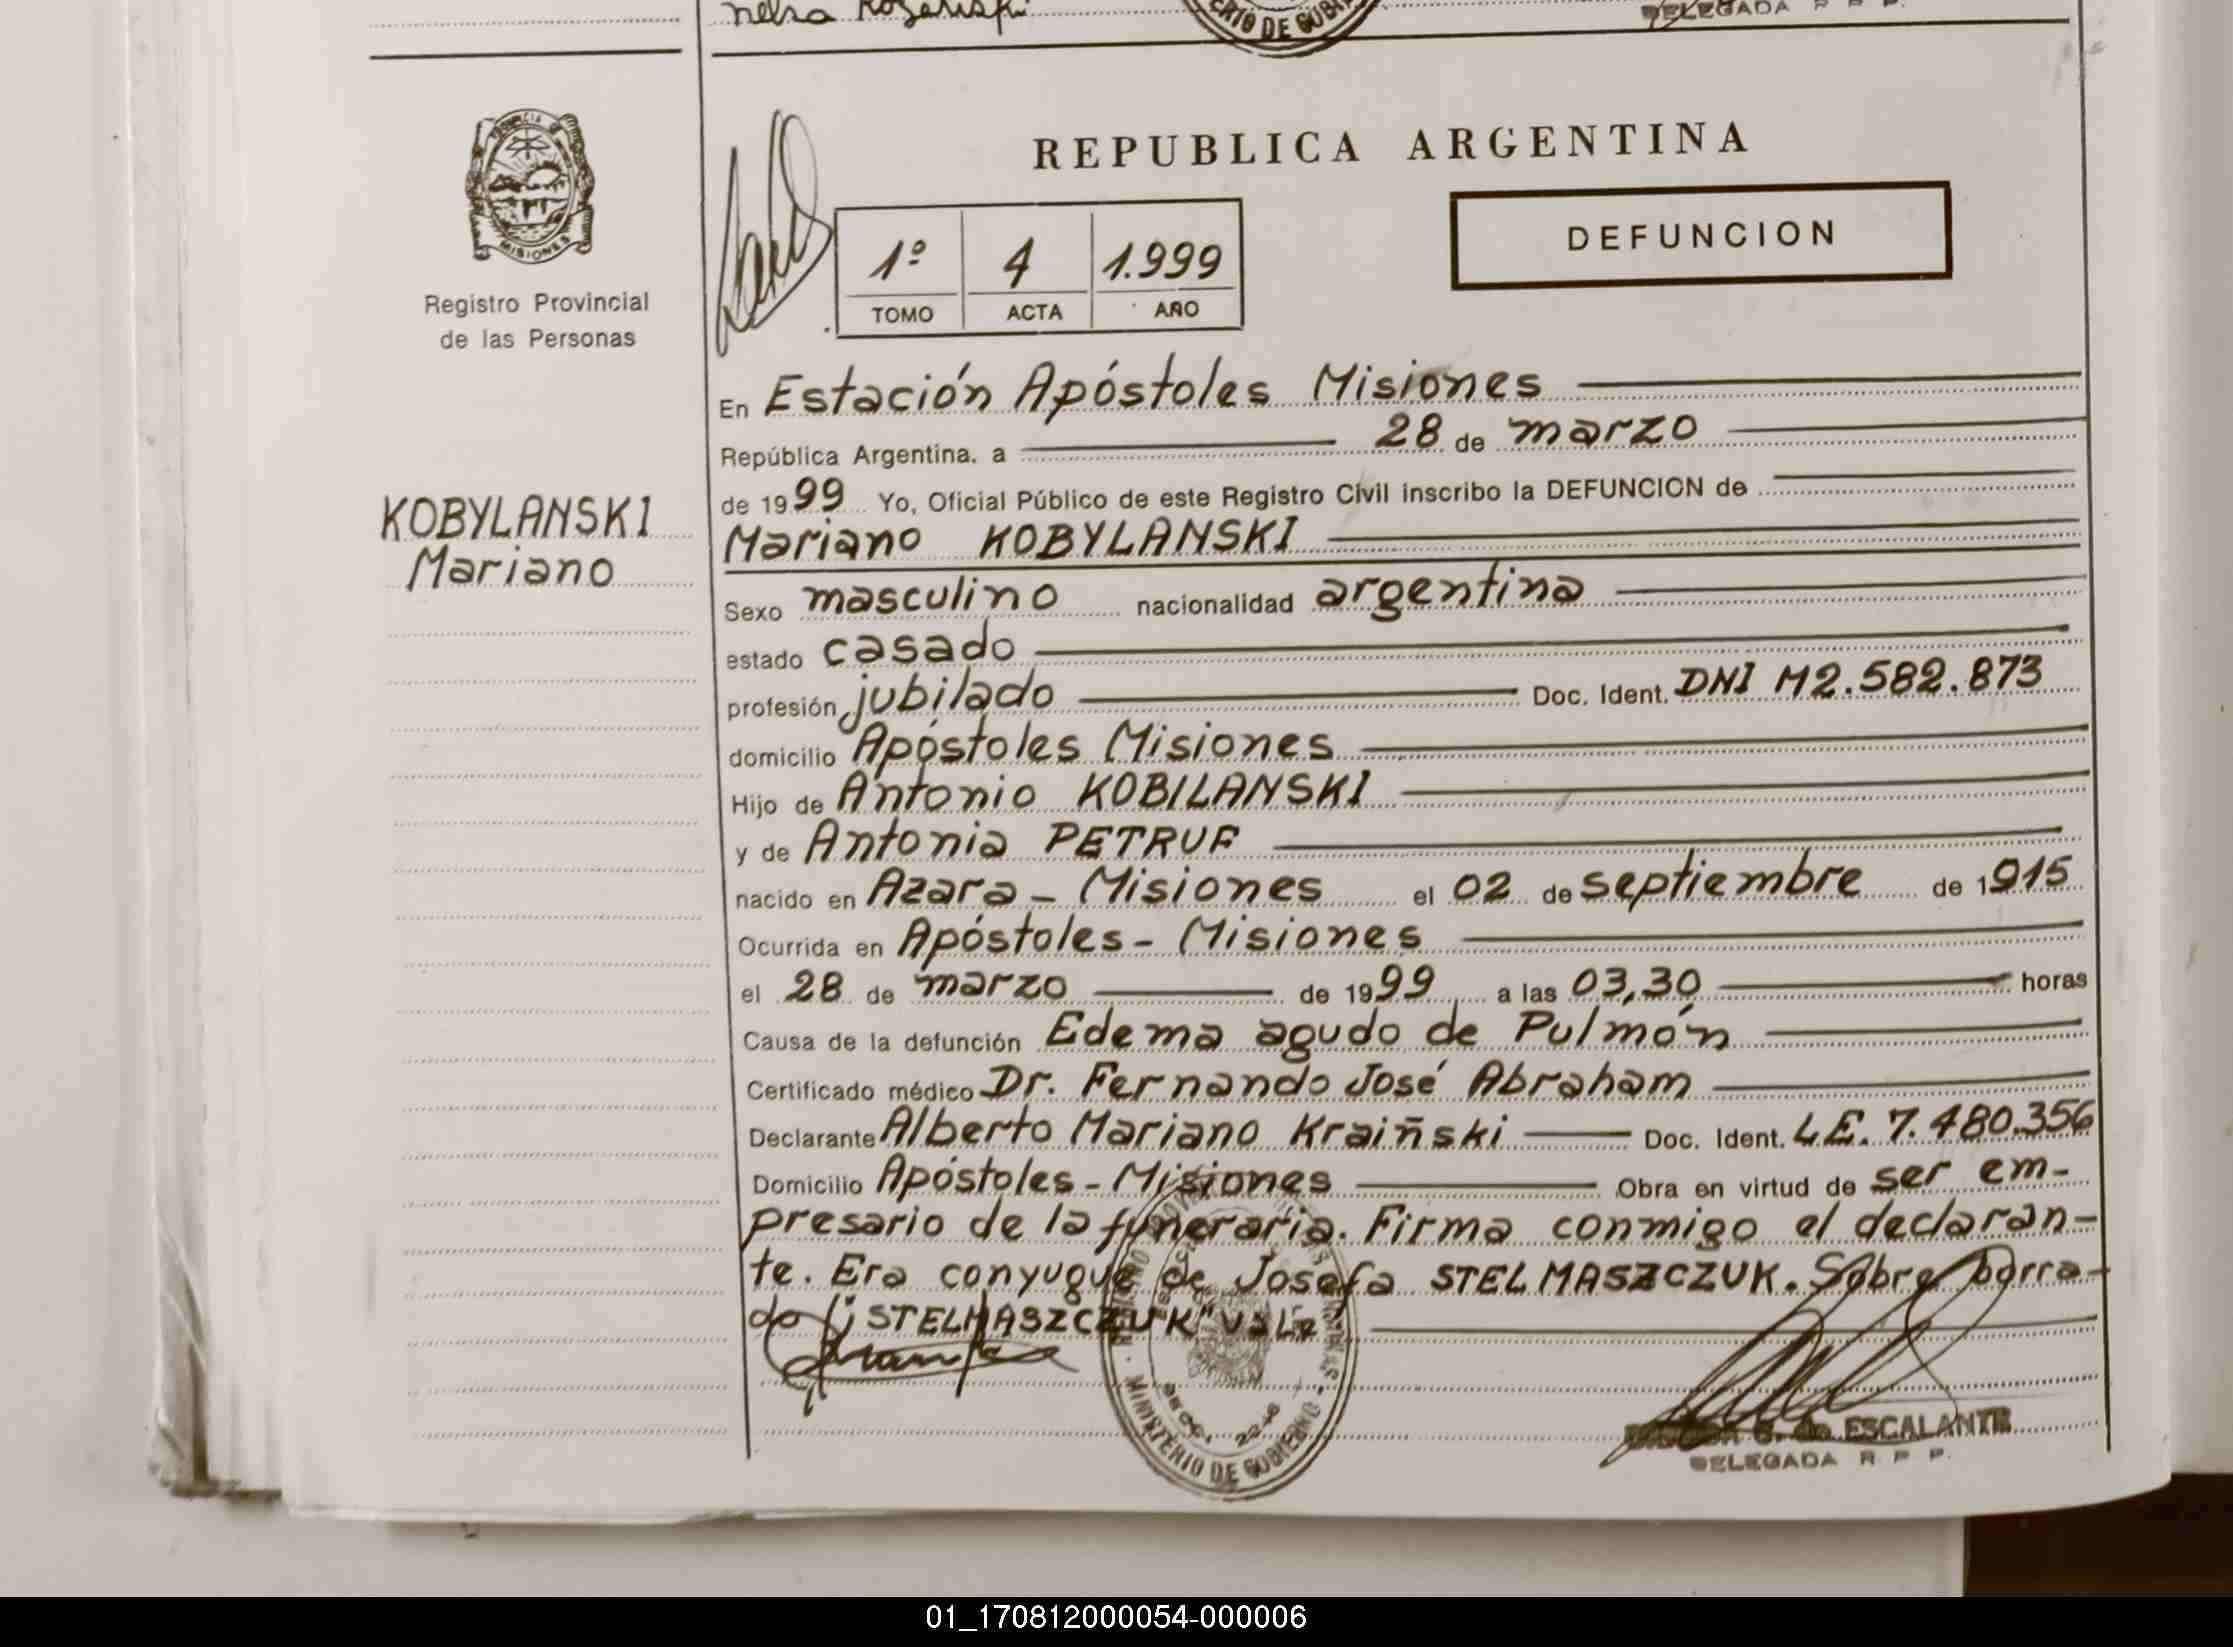 DELEGADA R P P.
MINISTERIO DE GOBIERNO
PROVINCIA DE
MISIONES
Registro Provincial
de las Personas
KOBYLANSKI
Mariano
REPUBLICA ARGENTINA
1º 4 1.999
TOMO ACTA AÑO
DEFUNCION
En Estación Apóstoles Misiones
República Argentina. a 28 de marzo
de 1999 Yo, Oficial Público de este Registro Civil inscribo la DEFUNCION de
Mariano KOBYLANSKI
Sexo masculino nacionalidad argentina
estado casado
profesión jubilado Doc. Ident. DNI M2.582.873
domicilio Apóstoles Misiones
Hijo de Antonio KOBILANSKI
y de Antonia PETRUF
nacido en Azara - Misiones el 02 de septiembre de 1915
Ocurrida en Apóstoles - Misiones
el 28 de marzo de 1999 a las 03,30 horas
Causa de la defunción Edema agudo de Pulmón
Certificado médico Dr. Fernando José Abraham
Declarante Alberto Mariano Kraiñski Doc. Ident. L.E. 7.480.356
Domicilio Apóstoles - Misiones Obra en virtud de ser em-
presario de la funeraria. Firma conmigo el declaran-
te. Era conyugue de Josefa STELMASZCZUK. Sobre borra-
do "STELMASZCZUK" vale
MINISTERIO DE GOBIERNO
G. de ESCALANTE
DELEGADA R P P.
01_170812000054-000006